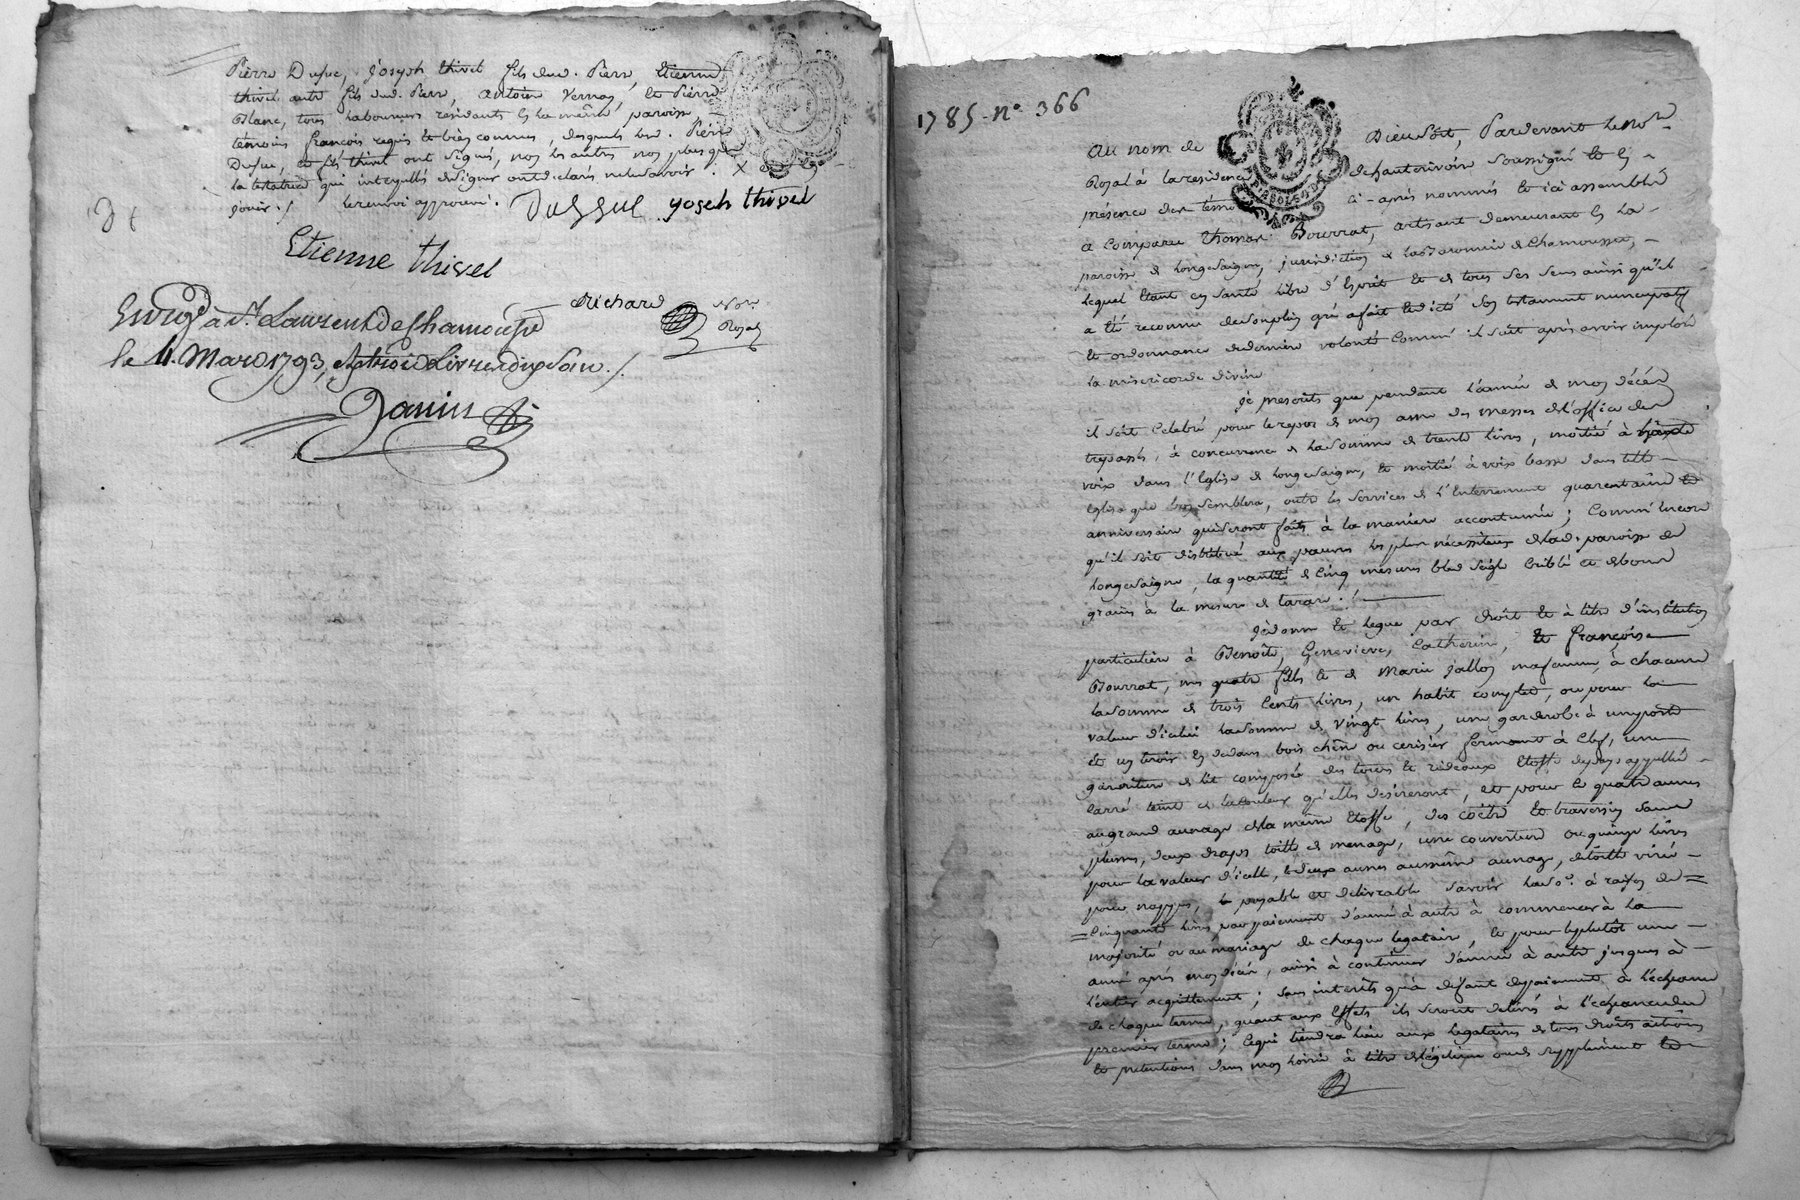 Pierre Dufuc, Joseph thivel fils dud. Pierre, Etienne
thivel autre fils dud. Pierre, antoine Vernay, et Pierre
Blanc, tous laboureurs résidants en la même paroisse,
temoins françois requis et bien connus, desquels led. Pierre
Dufuc, et fils thivel ont signés, non les autres non plus que
la testatrice qui interpellés de signer ont déclaré ne le savoir. X
jouir :/ le renvoi approuvé. Duffuc yoseh thivel
Etienne thivel
Richard
Nore
Royal
Enrgé à St. Laurent de Chamousset
le 4. Mars 1793,
Janin
1785 - n° 366
Au nom de Dieu soit, Pardevant le Notre
Royal à la residence de hauterivoire soussigné et en
présence des témoins ci-après nommés et ici assemblés
a comparu thomas Bourrat, artisant demeurant en la
paroisse de Longesaigne, jurisdiction de la Baronnie de Chamousset,
lequel étant en santé libre d'Esprit et de tous ses sens ainsi qu'il
a été reconnu de son plein gré a fait et dicté son testament nuncupatif
et ordonnance de derniere volonté comme il suit après avoir imploré
la misericorde divine
Je prescrits que pendant l'année de mon décès
il soit celebré pour le repos de mon ame des messes de l'office des
trepassés, à concurrence de la somme de trente livres, moitié à haute
voix dans l'Eglise de Longesaigne, et moitié à voix basse dans telle
Eglise que bon semblera, outre les services de l'Enterrement quarentaine et
anniversaire qui seront faits à la maniere accoutumée; Comm'encore
qu'il soit distribué aux pauvres les plus nécessiteux de lad. paroisse de
Longesaigne, la quantité de cinq mesures bled seigle criblé et de bons
grains à la mesure de tarare :/
Je donne et legue par droit et à titre d'institution
particuliere à Benoîte, Genevieve, Catherine, et françoise
Bourrat, mes quatre filles et de Marie Jallon ma femme, à chacune
la somme de trois cents livres, un habit complet, ou pour la
valeur d'icelui la somme de vingt livres, une garderobe à une porte
et un tiroir en dedans bois chêne ou cerisier fermant à clef, une
garniture de lit composée des tours et rideaux Etoffe du pays appellée
carré teint de la couleur qu'elles desireront, et pour ce quatre aunes
au grand aunage de la même Etoffe, des coëtre et traversin sans
plumes, deux draps toille de menage, une couverture ou quinze livres
pour la valeur d'icelle, et deux aunes au même aunage, de toille virée
pour nappes, le payable et delivrable savoir lad. so.e à raison de
cinquante livres par paiement d'année à autre à commencer à la
majorité ou au mariage de chaque legataire, et pour le plutôt une
année après mon décès, ainsi à continuer d'année à autre jusques à
l'entier acquittement; sans interêts qu'à defaut de paiement à l'echeance
de chaque terme, quant aux effets ils seront delivrés à l'echeance du
premier terme; ce qui tiendra lieu aux legataires de tous droits actions
et pretentions dans mon hoirie à titre de légitime ou de supplément et